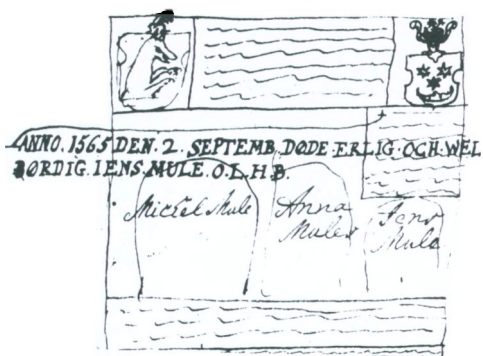 ANNO. 1565 DEN. 2. SEPTEMB. DØDE. ERLIG. OCH. WEL
BØRDIG. IENS. MULE. O. L. H. B.
Michel Mule
Anna
Mules
Jens
Mule